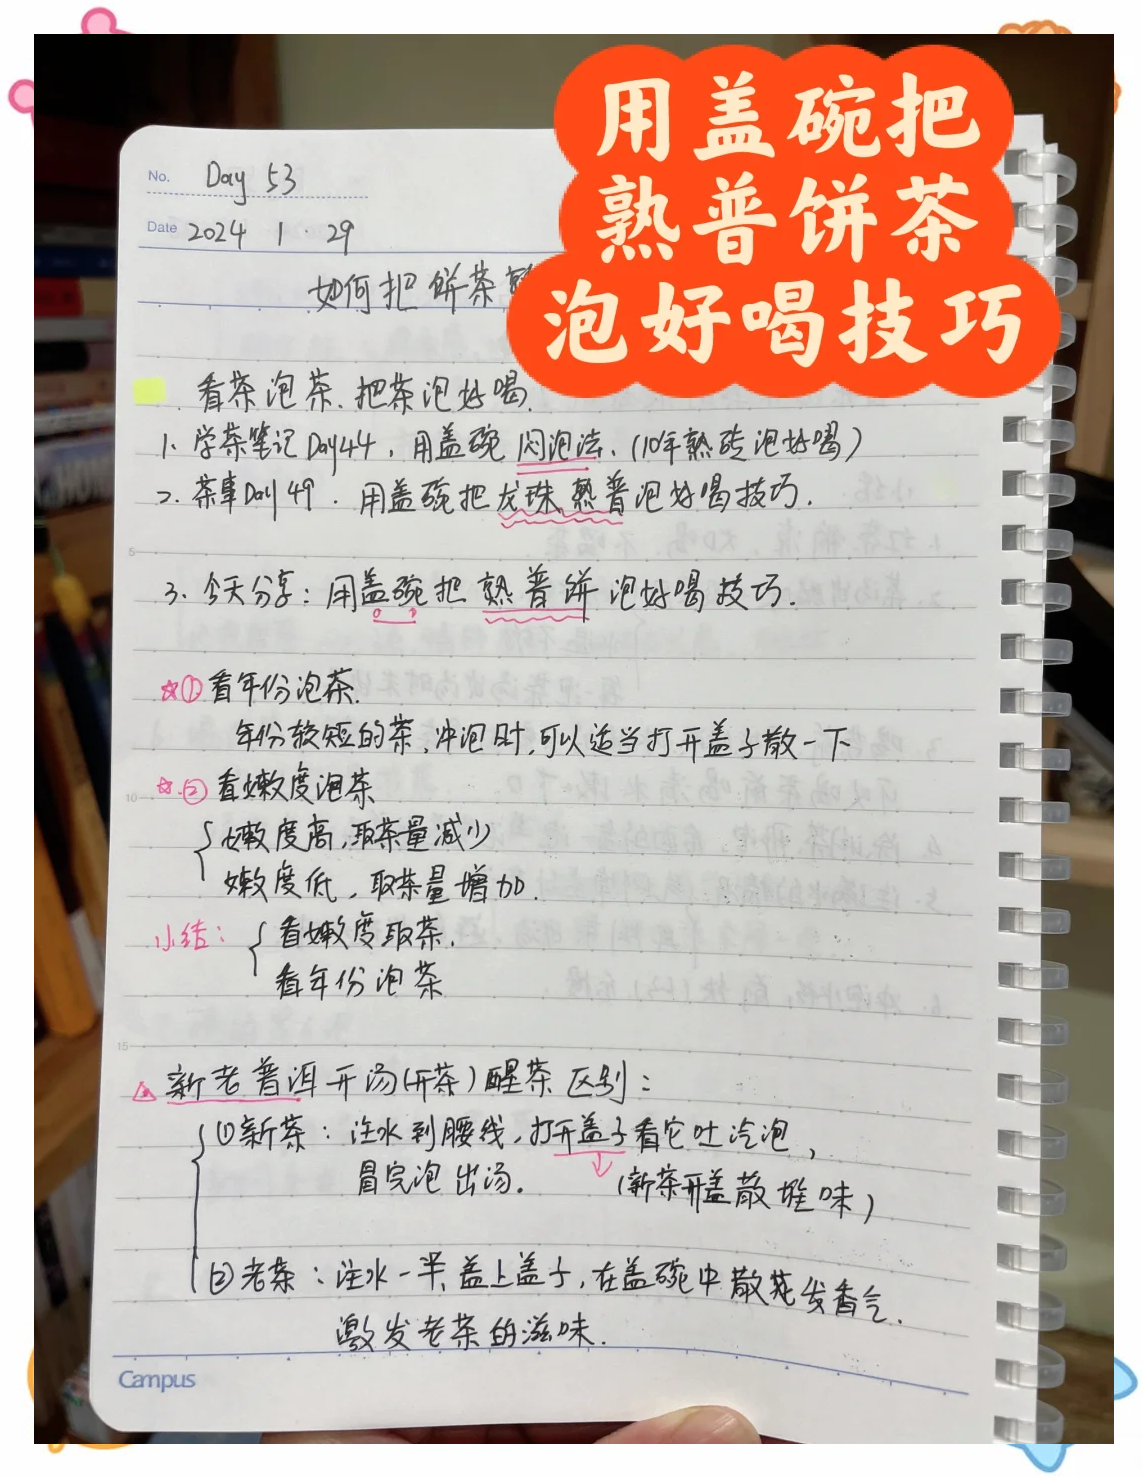 用盖碗把
熟普饼茶
泡好喝技巧
No. Day 53
Date 2024 1 · 29
如何把饼茶
看茶泡茶、把茶泡好喝.
1. 学茶笔记Day44，用盖碗闪泡法.（10年熟砖泡好喝）
2. 茶事Day49 . 用盖碗把龙珠熟普泡好喝技巧.
5
3. 今天分享：用盖碗把熟普饼泡好喝技巧.
☆①看年份泡茶.
年份较短的茶,冲泡时,可以适当打开盖子散一下
10
☆②看嫩度泡茶
嫩度高,取茶量减少
嫩度低，取茶量增加.
小结：看嫩度取茶.
看年份泡茶
15
新老普洱开汤(开茶)醒茶区别：
①新茶：注水到腰线，打开盖子看它吐汽泡，
冒完泡出汤.
（新茶开盖散堆味）
②老茶：注水一半,盖上盖子,在盖碗中散发香气.
激发老茶的滋味.
Campus